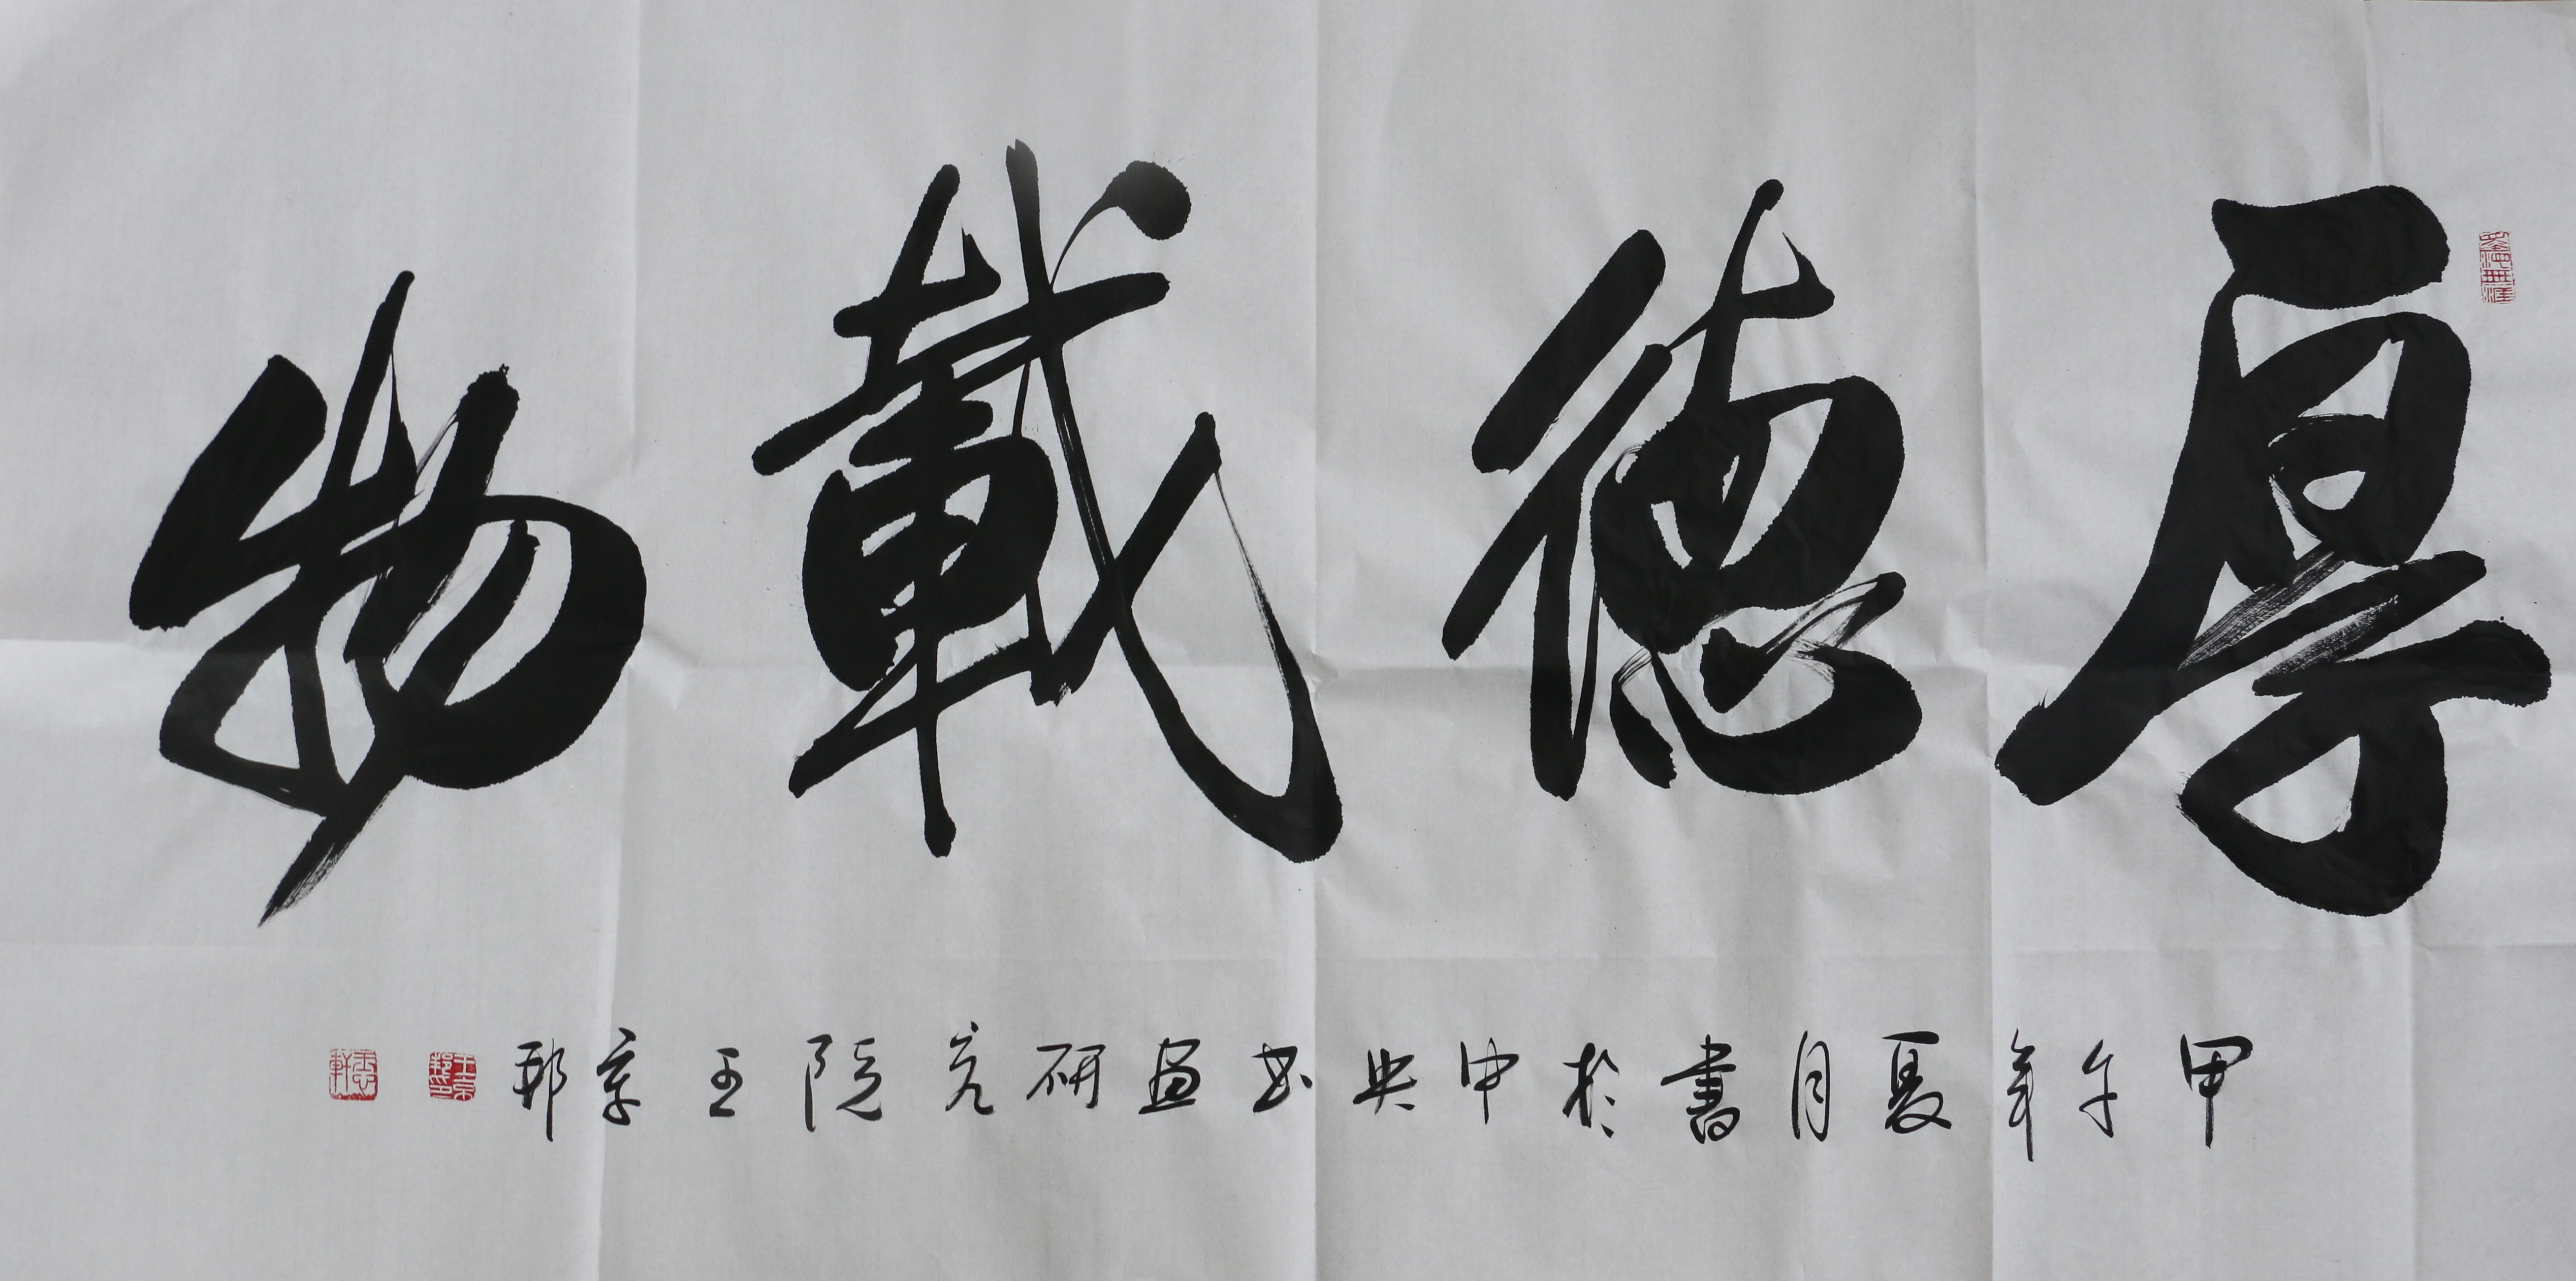 厚德載物
甲午年夏月書於中央书画研究院王宗邦